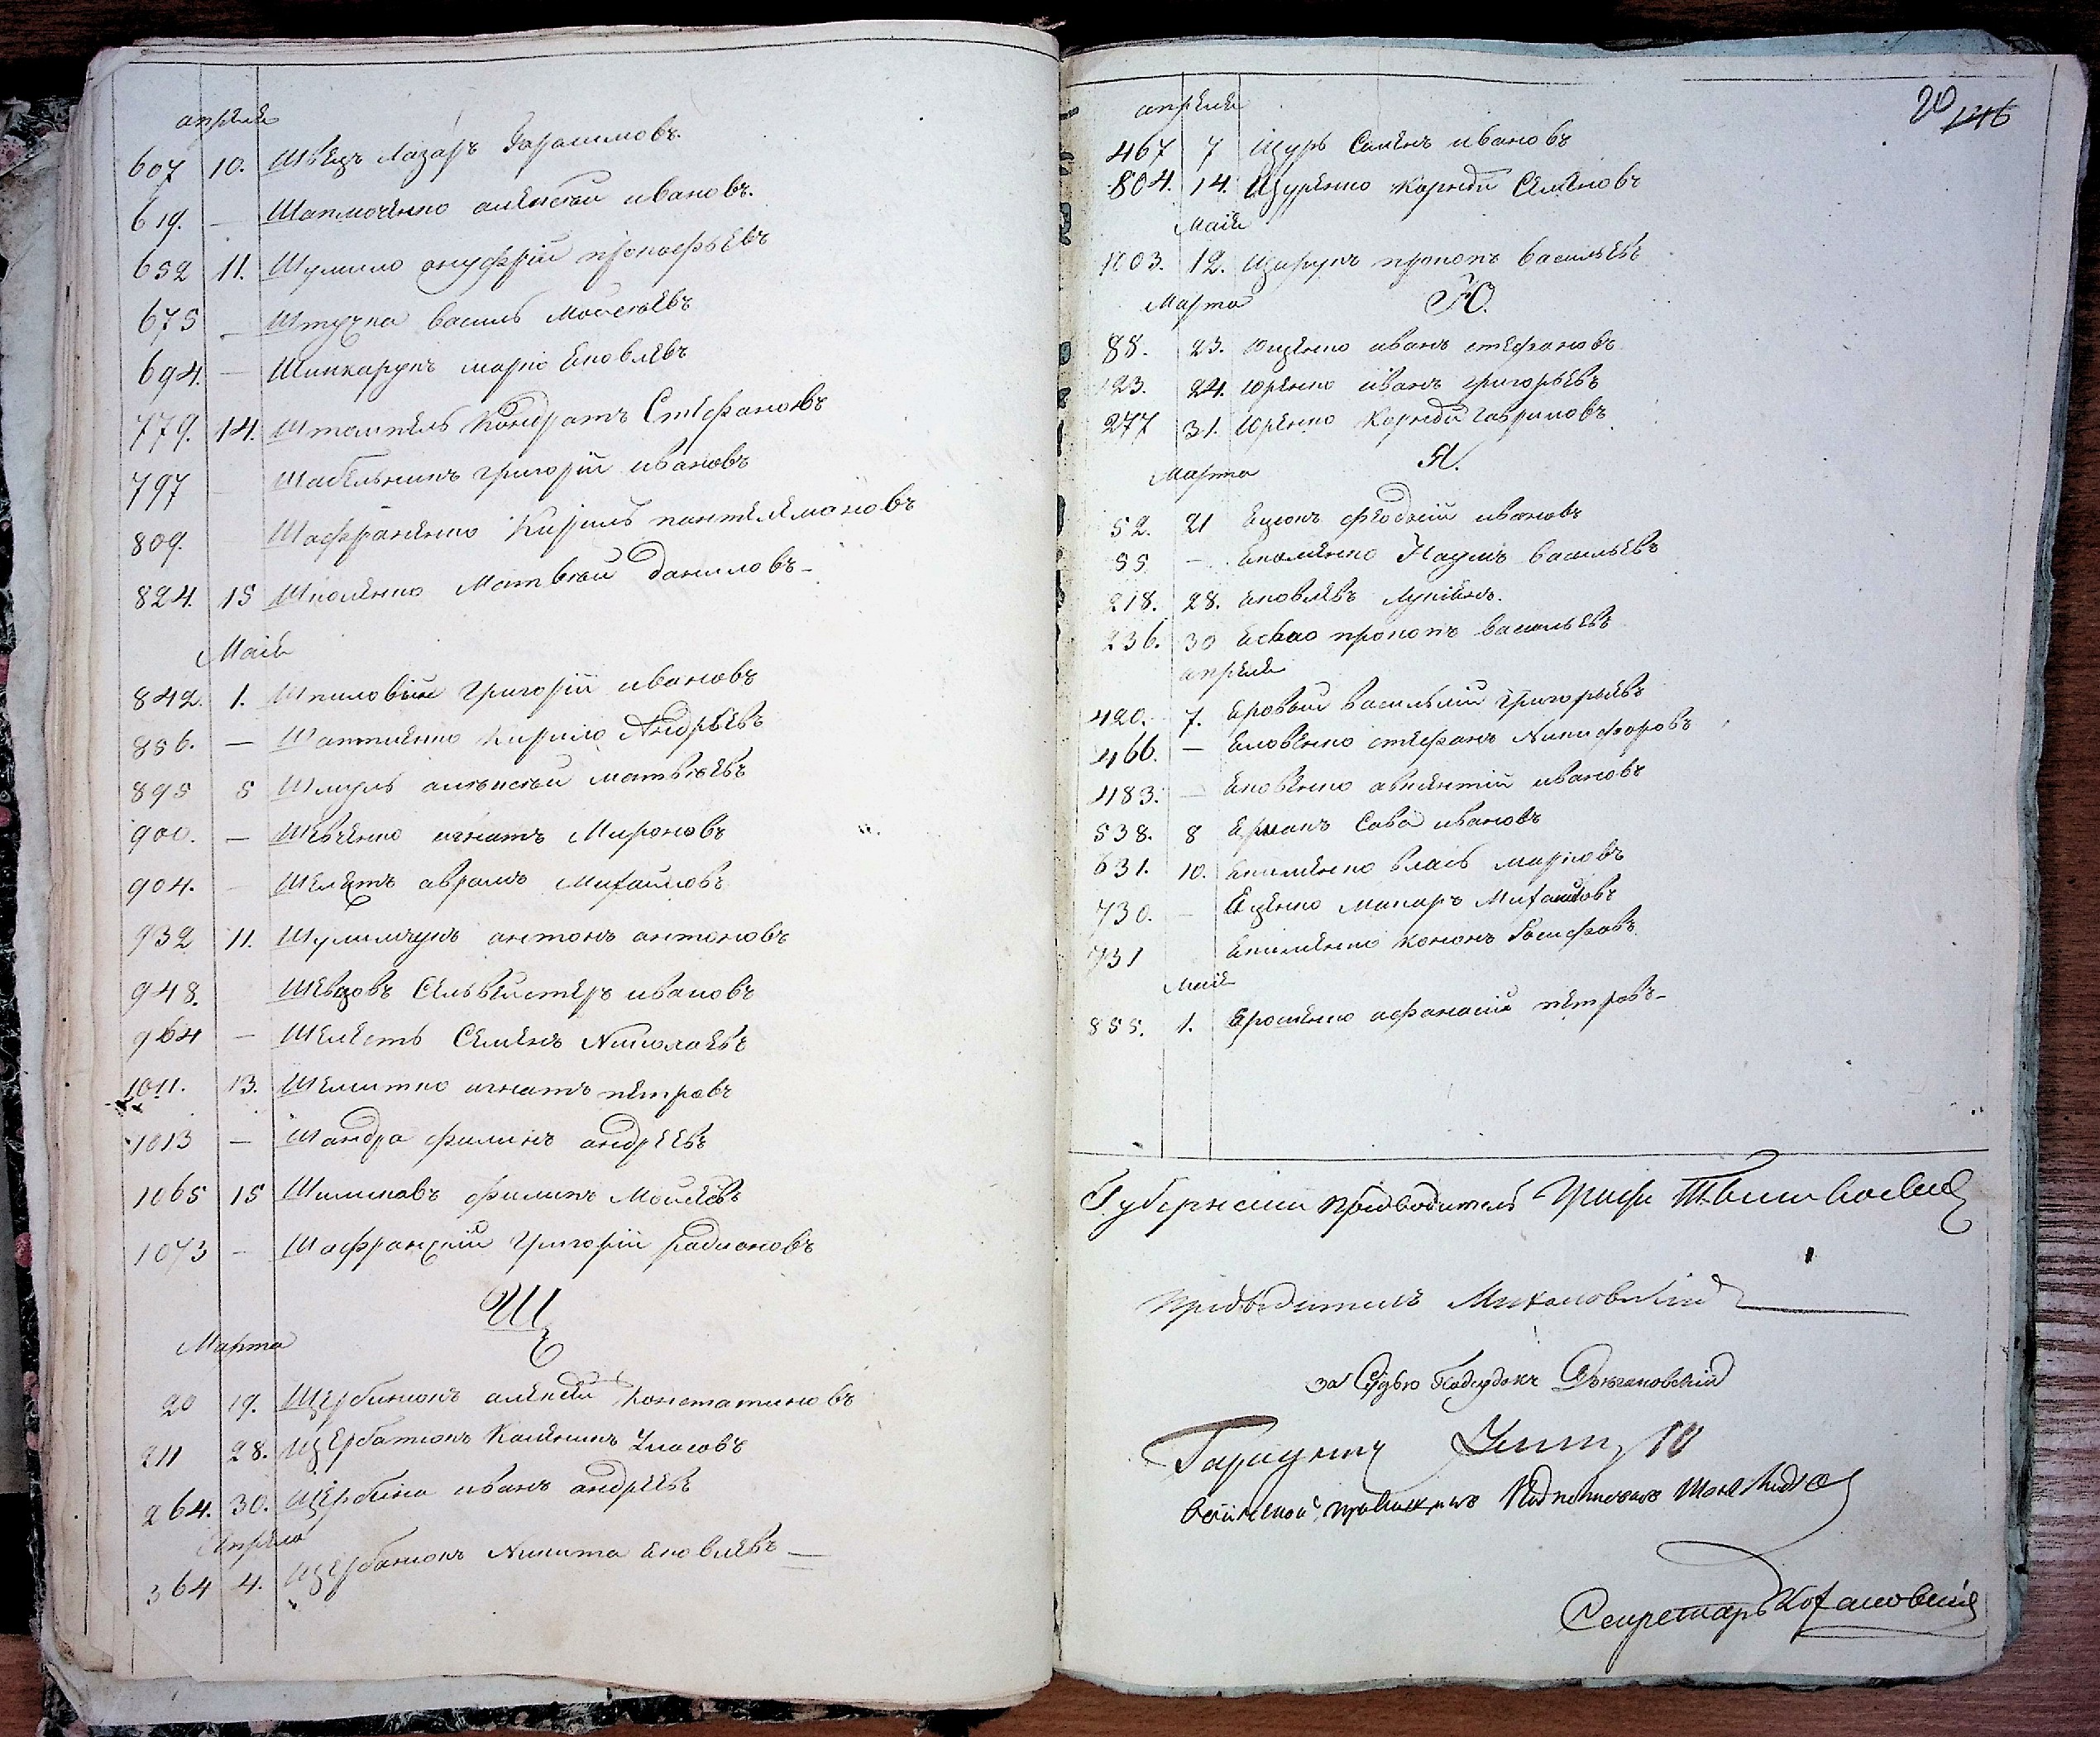 апреля
607 10. Швецъ Лазаръ Гарасимовъ
619. — Шапмоченко алексѣй ивановъ.
652 11. Шумило онуфрій прокофьевъ
675 — Штучка василь Мойсеевъ
694. — Шинкарукъ марко яковлевъ
779. 14. Штомпель Кондратъ Стефановъ
797 Шабельникъ григорій ивановъ
809. Шафраненко Кирилъ пантелемоновъ
824. 15 Шполенко Матвѣй даниловъ —
Маія
842. 1. Шпиловый григорій ивановъ
856. — Шаптенко Кирило Андрѣевъ
895 5 Шмуль алексѣй матвѣевъ
900. — Шевченко игнатъ Мироновъ
904. — Шелестъ аврамъ Михайловъ
932 11. Шулимчукъ антонъ антоновъ
948. Шевцовъ Сельвестеръ ивановъ
964 — Шелестъ Семенъ Николаевъ
1011. 13. Шелитко игнатъ петровъ
1013 — Шандра филипъ андреевъ
1065 15 Шилиповъ филипъ Мойсеевъ
1073 — Шафранскій григорій радионовъ
Щ
Марта
20 19. Щербинюкъ алексѣй Констатиновъ
211 28. Щербатюкъ Калѣникъ
264. 30. Щербина иванъ андреевъ
Апреля
364 4. Щербанюкъ Никита яковлевъ —
20 146
апреля
467 7 Щуръ Семенъ ивановъ
804. 14. Щуренко Корнѣй Семеновъ
Маія
1003. 12. Щирукъ прокопъ васильевъ
Марта Ю.
88. 23. Ющенко иванъ стефановъ
123. 24. Юренко иванъ григорьевъ
277 31. Юренко Корнѣй Гавриловъ
Марта Я.
52. 21 Яцюкъ феодосій ивановъ
55 — Якименко Наумъ васильевъ
218. 28. Яковлевъ Лукіянъ.
236. 30 Ясько прокопъ васильевъ
апреля
420. 7. Яровый василый григорьевъ
466. — Яловенко стефанъ Никифоровъ
483. — Яковенко авксентій ивановъ
538. 8 Ярмакъ Сава ивановъ
631. 10. Якименко власъ марковъ
730. — Яценко макаръ Михайловъ
731 Якименко кононъ Іосифовъ
Маія
855. 1. Ярошенко афанасій петровъ —
Губернскій Предводитель Графъ
Предводитель Михаловскій
за Судью Подсудокъ
Секретарь Кохановскій